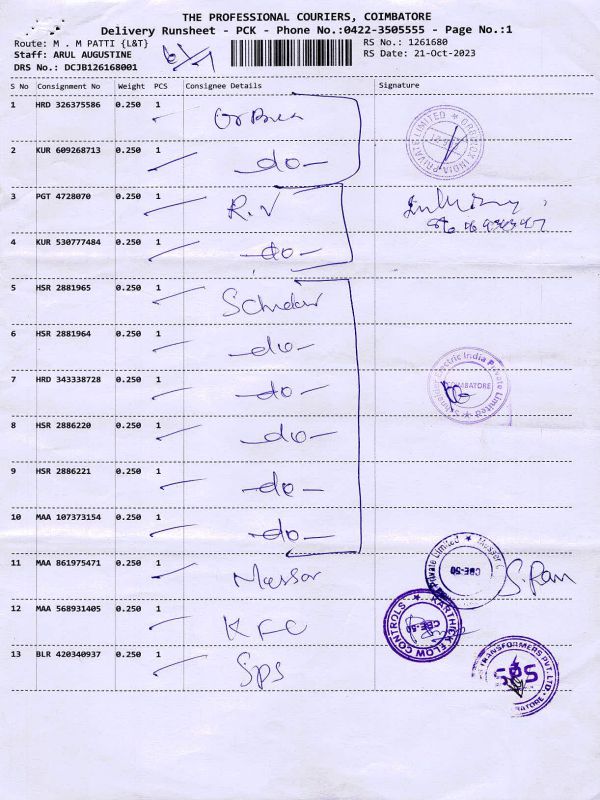 THE PROFESSIONAL COURIERS, COIMBATORE
Delivery Runsheet - PCK - Phone No.:0422-3505555 - Page No.:1
Route: M . M PATTI {L&T}
RS No.: 1261680
Staff: ARUL AUGUSTINE
RS Date: 21-Oct-2023
DRS No.: DCJB126168001
S No Consignment No Weight PCS Consignee Details Signature
1 HRD 326375586 0.250 1
2 KUR 609268713 0.250 1 -do-
3 PGT 4728070 0.250 1 R.V
4 KUR 530777484 0.250 1 -do-
5 HSR 2881965 0.250 1
6 HSR 2881964 0.250 1 -do-
7 HRD 343338728 0.250 1 -do-
8 HSR 2886220 0.250 1 -do-
9 HSR 2886221 0.250 1 -do-
10 MAA 107373154 0.250 1 -do-
11 MAA 861975471 0.250 1
12 MAA 568931405 0.250 1 KFC
13 BLR 420340937 0.250 1 Sps
INDIA PRIVATE LIMITED
Electric India Private Limited
COIMBATORE
Private Limited
CBE-50
S Ram
KARTHICK FLOW CONTROLS
CBE-50
TRANSFORMERS PVT. LTD
SPS